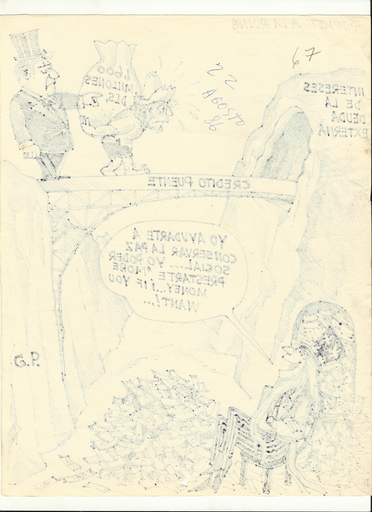 PUENTE A LA RUINA
67
22
AGOSTO
86
1,600
MILLONES
DLS
INTERESES
DE LA
DEUDA
EXTERNA
CREDITO PUENTE
YO AYUDARTE A
CONSERVAR LA PAZ
SOCIAL... YO PODER
PRESTARTE "MORE
MONEY..! IF YOU
WANT!...!
G.P.